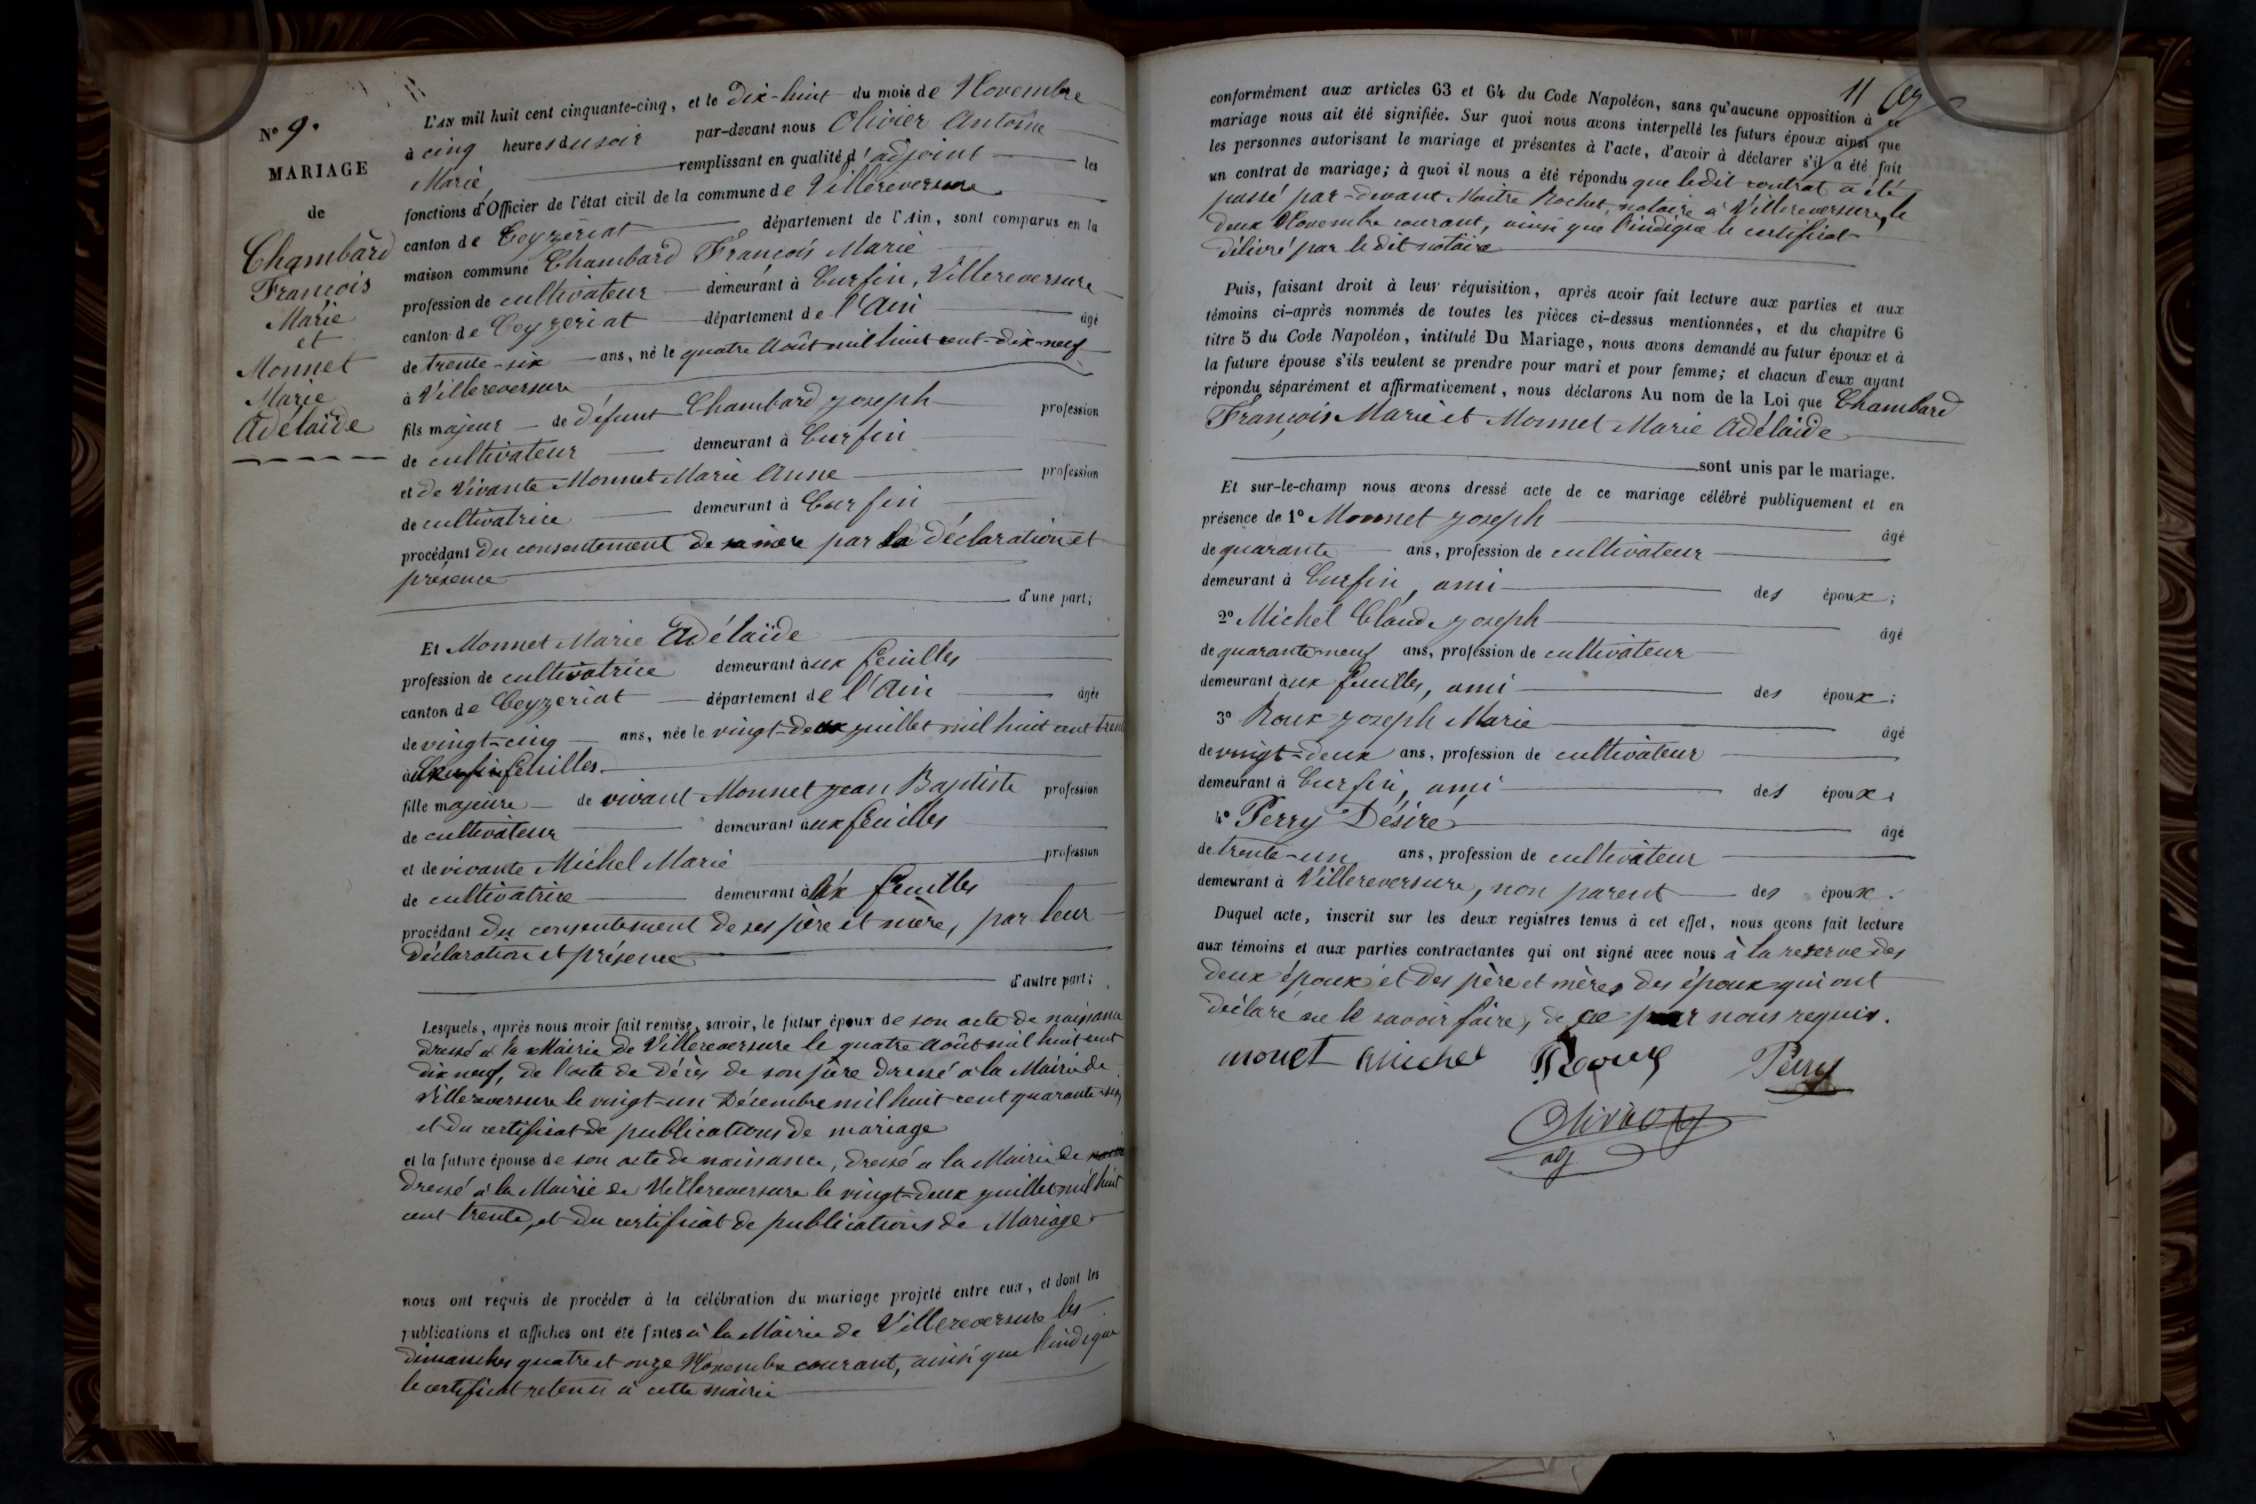 N° 9.
MARIAGE
de
Chambard
François
Marie
et
Monnet
Marie
Adélaïde
L'AN mil huit cent cinquante-cinq, et le dix-huit du mois de Novembre
à cinq heures du soir par-devant nous Olivier Antoine
Marie, remplissant en qualité d'adjoint les
fonctions d'Officier de l'état civil de la commune de Villereversure
canton de Ceyzeriat département de l'Ain, sont comparus en la
maison commune Chambard François Marie
profession de cultivateur demeurant à Curfin, Villereversure
canton de Ceyzeriat département de l'Ain âgé
de trente-six ans, né le quatre Août mil huit cent-dix-neuf
à Villereversure
fils majeur de défunt Chambard Joseph profession
de cultivateur demeurant à Curfin
et de vivante Monnet Marie Anne profession
de cultivatrice demeurant à Curfin
procédant du consentement de sa mère par sa déclaration et
présence
d'une part;
Et Monnet Marie Adélaïde
profession de cultivatrice demeurant aux feuilles
canton de Ceyzeriat département de l'Ain âgée
de vingt-cinq ans, née le vingt-deux juillet mil huit cent trente
aux feuilles
fille majeure de vivant Monnet Jean Baptiste profession
de cultivateur demeurant aux feuilles
et de vivante Michel Marie profession
de cultivatrice demeurant aux feuilles
procédant du consentement de ses père et mère, par leur
déclaration et présence
d'autre part;
Lesquels, après nous avoir fait remise, savoir, le futur époux de son acte de naissance
dressé à la Mairie de Villereversure le quatre Août mil huit cent
dix neuf, de l'acte de décès de son père dressé à la Mairie de
Villereversure le vingt-un Décembre mil huit cent quarante
et du certificat de publications de mariage
et la future épouse de son acte de naissance, dressé a la Mairie de
dressé à la Mairie de Villereversure le vingt-deux juillet mil huit
cent trente, et du certificat de publications de Mariage
nous ont requis de procéder à la célébration du mariage projeté entre eux, et dont les
publications et affiches ont été faites à la Mairie de Villereversure les
dimanches quatre et onze Novembre courant, ainsi que l'indique
le certificat retenu à cette mairie
11
conformément aux articles 63 et 64 du Code Napoléon, sans qu'aucune opposition à ce
mariage nous ait été signifiée. Sur quoi nous avons interpellé les futurs époux ainsi que
les personnes autorisant le mariage et présentes à l'acte, d'avoir à déclarer s'il a été fait
un contrat de mariage; à quoi il nous a été répondu que ledit contrat a été
passé par-devant Maître Rochet, notaire à Villereversure, le
deux Novembre courant, ainsi que l'indique le certificat
délivré par le dit notaire
Puis, faisant droit à leur réquisition, après avoir fait lecture aux parties et aux
témoins ci-après nommés de toutes les pièces ci-dessus mentionnées, et du chapitre 6
titre 5 du Code Napoléon, intitulé Du Mariage, nous avons demandé au futur époux et à
la future épouse s'ils veulent se prendre pour mari et pour femme; et chacun d'eux ayant
répondu séparément et affirmativement, nous déclarons Au nom de la Loi que Chambard
François Marie et Monnet Marie Adélaïde
sont unis par le mariage.
Et sur-le-champ nous avons dressé acte de ce mariage célébré publiquement et en
présence de 1° Monnet Joseph âgé
de quarante ans, profession de cultivateur
demeurant à Curfin, ami des époux;
2° Michel Claude Joseph âgé
de quarante-neuf ans, profession de cultivateur
demeurant aux feuilles, ami des époux;
3° Roux Joseph Marie âgé
de vingt-deux ans, profession de cultivateur
demeurant à Curfin, ami des époux;
4° Perry Désiré âgé
de trente-un ans, profession de cultivateur
demeurant à Villereversure, non parent des époux.
Duquel acte, inscrit sur les deux registres tenus à cet effet, nous avons fait lecture
aux témoins et aux parties contractantes qui ont signé avec nous à la reserve des
deux époux et des père et mères des époux qui ont
déclaré ne le savoir faire, de ce par nous requis.
monet Michel Roux Perry
Olivier
adj